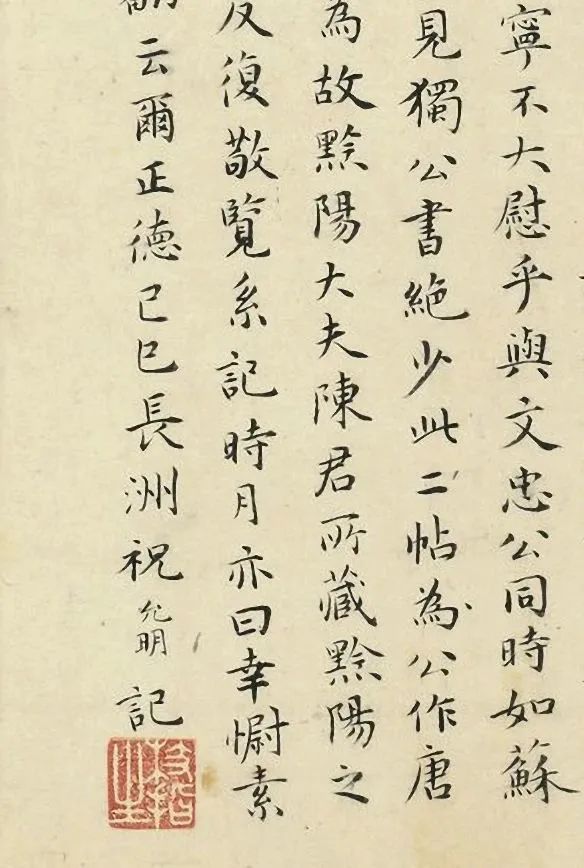 寧不大慰乎與文忠公同時如蘇
見獨公書絕少此二帖為公作唐
為故黟陽大夫陳君所藏黟陽之
反復敬覽系記時月亦曰幸慰素
云爾正德己巳長洲祝允明記